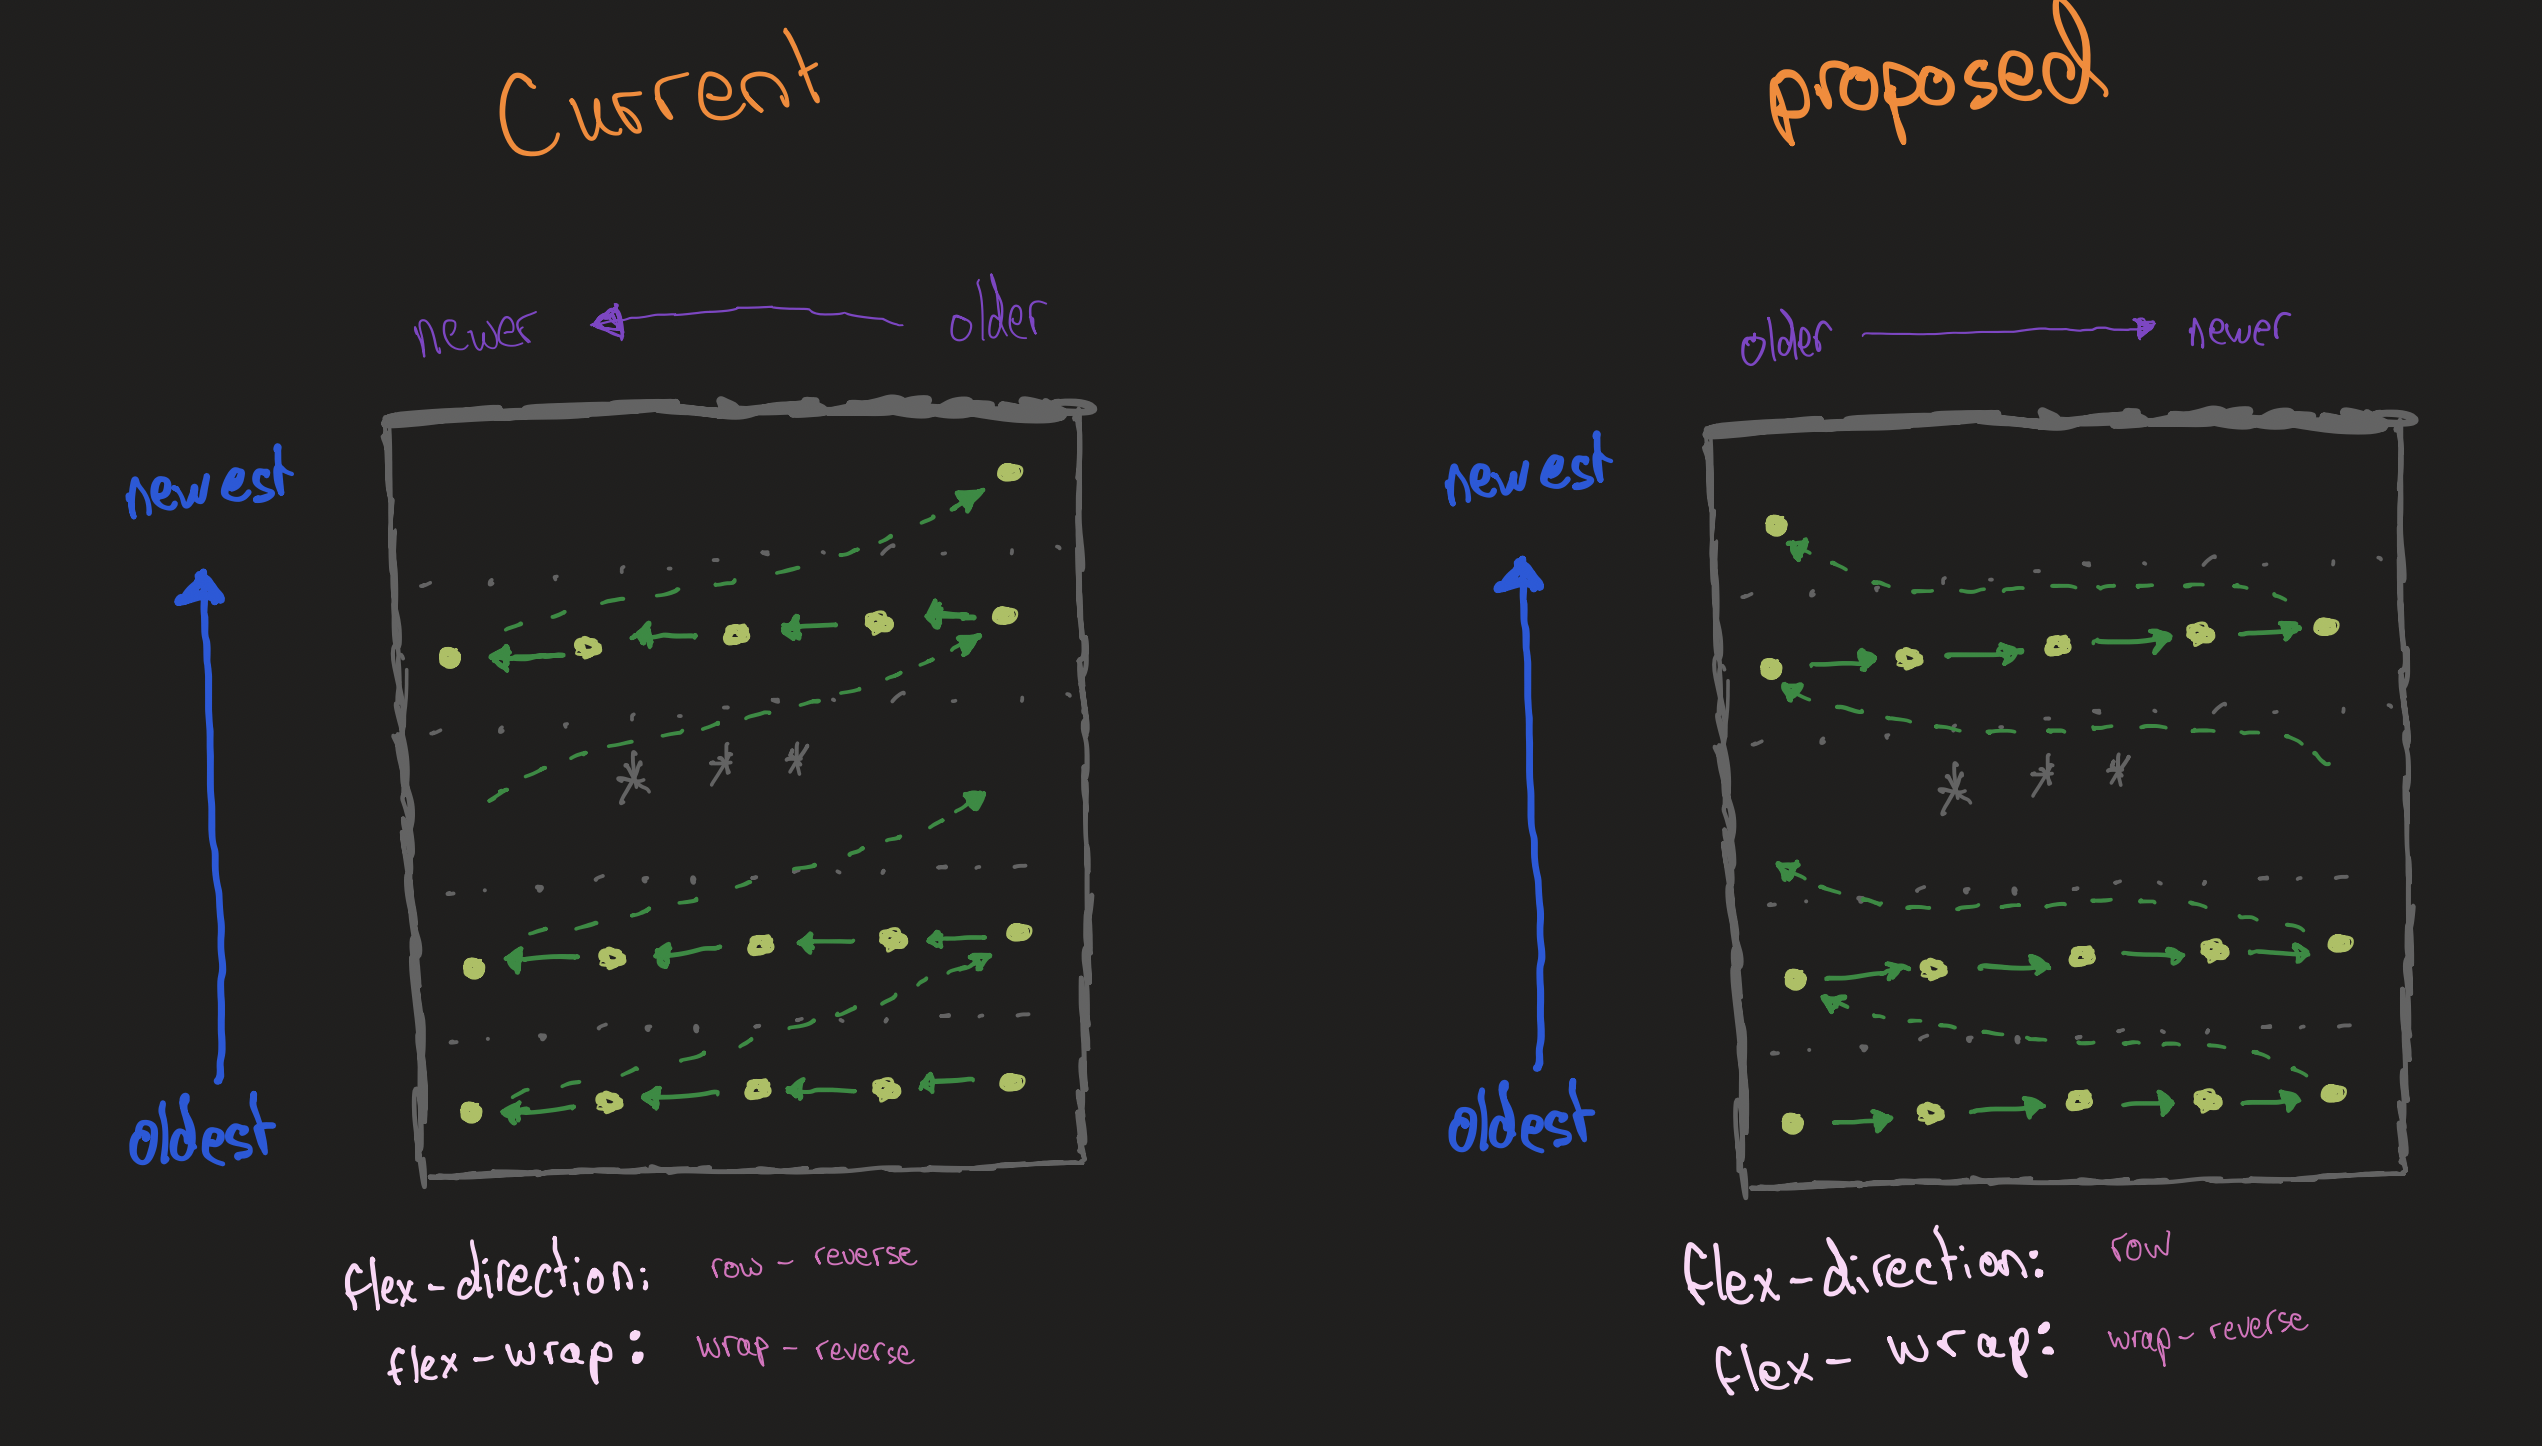 Current
newer older
newest
oldest
flex-direction: row-reverse
flex-wrap: wrap-reverse
proposed
older newer
newest
oldest
flex-direction: row
flex-wrap: wrap-reverse